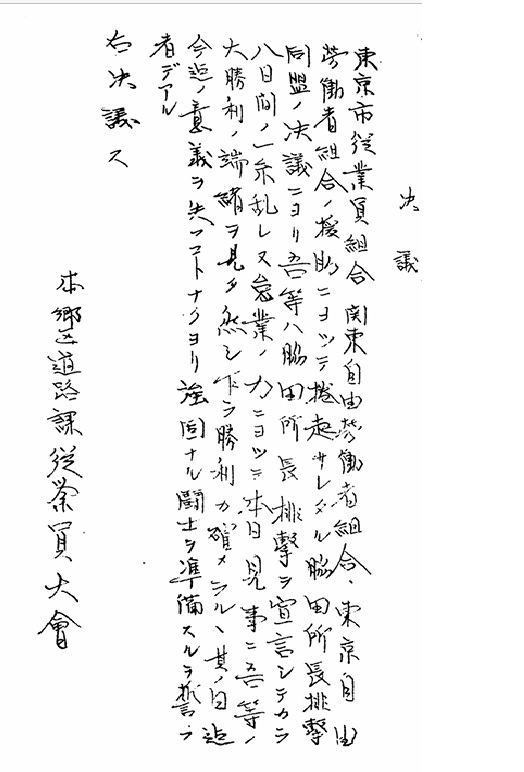 決議
東京市従業員組合 関東自由労働者組合、東京自由
労働者組合ノ援助ニヨッテ捲起サレタル脇田所長排撃
同盟ノ決議ニヨリ吾等ハ脇田所長排撃ヲ宣言シテカラ
八日間ノ一糸乱レヌ怠業ノ力ニヨッテ本日見事ニ吾等ノ
大勝利ノ端緒ヲ見タ然シ下ラ勝利カ確メラルヽ其ノ日迄
今迄ノ意義ヲ失フコトナクヨリ強固ナル闘士ヲ準備スルヲ誓フ
者デアル
右決議ス
本郷区道路課従業員大會